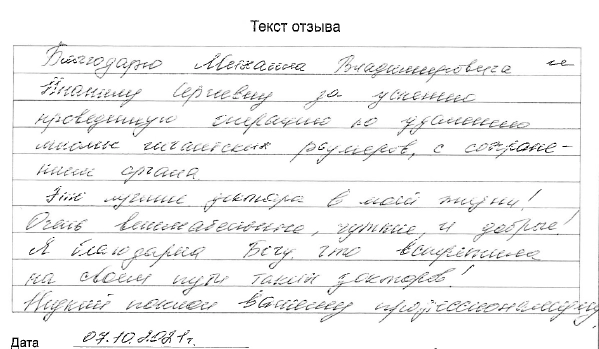 Текст отзыва
Благодарю Михаила Владимировича и
Сергеевну за успешно
проведенную операцию по удалению
миомы гигантских размеров, с сохране-
нием органа.
Это лучшие доктора в моей жизни!
Очень внимательные, чуткие и добрые!
Я благодарна Богу, что встретила
на своем пути таких докторов!
Низкий поклон вашему профессионализму
Дата 07.10.2021г.